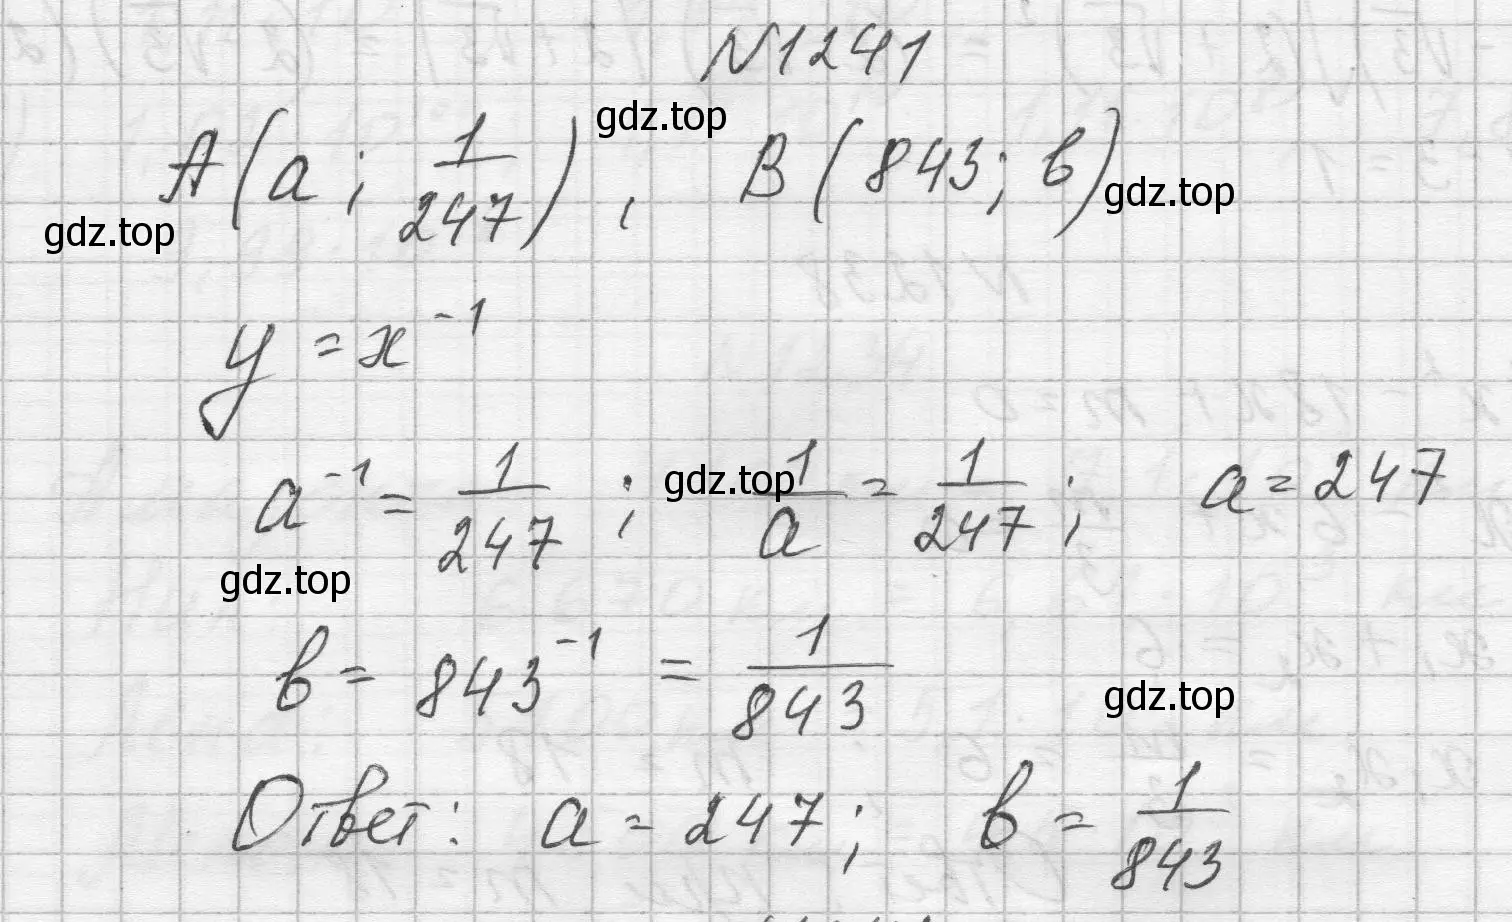 N1241
gdz.top
A(a; 1/247), B(843; в)
gdz.top
gdz.top
y = x⁻¹
a⁻¹ = 1/247; gdz.top 1/a = 1/247; a = 247
gdz.top
в = 843⁻¹ = 1/843
gdz.top
Ответ: a = 247; в = 1/843